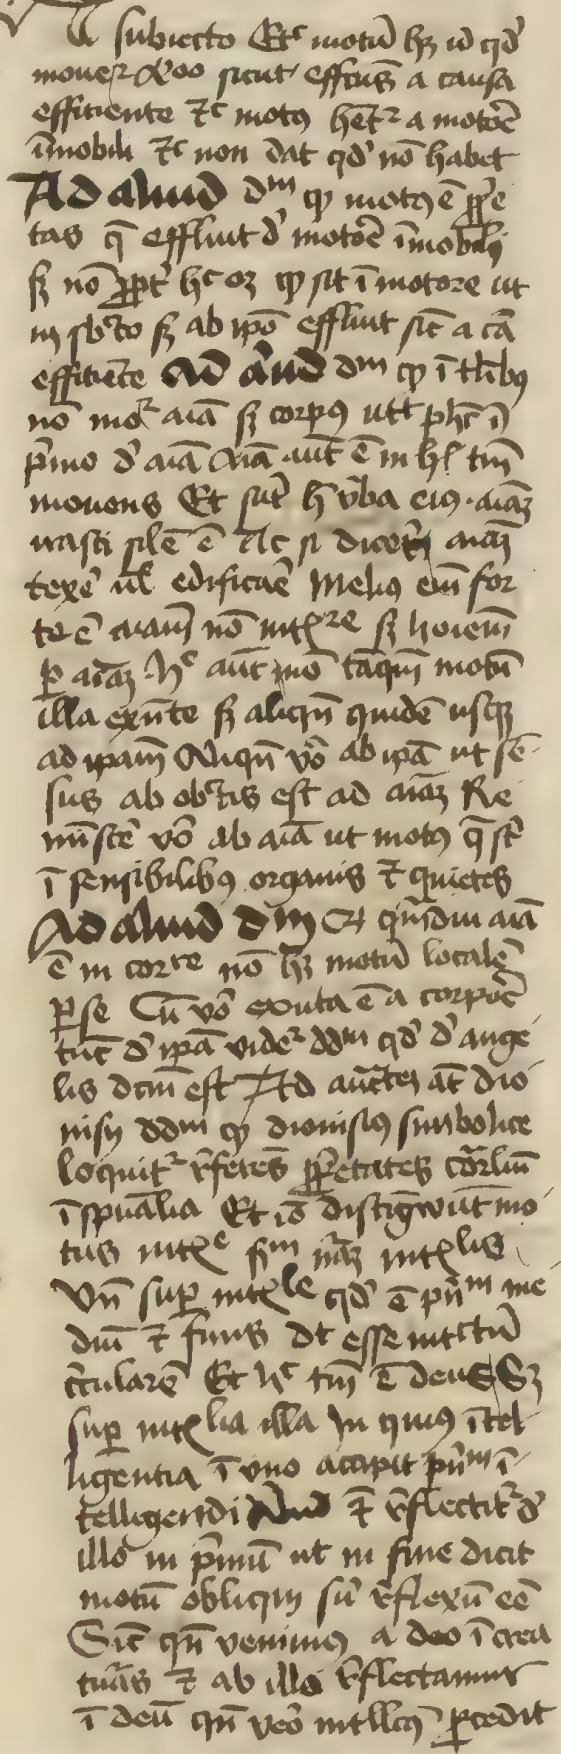 A subiecto Etc motū hꝫ id qd'
mouetr Alio sicut effctus a causa
efficiente Etc motꝯ hētr a motore
īmobili Etc non dat qd' nō habet
Ad aliud dm qꝫ motꝯ ē ꝓp̄e
tas q̄ effluit d' motore īmobili
sꝫ nō ꝓpt' hc oꝫ qꝫ sit ī motore ut
in sbcto sꝫ ab ipō effluit sic̄ a cā
efficiēte Ad aliud dm qꝫ ī tlibꝯ
nō mor aīā sꝫ corpꝯ utt phc̄ ī
p̄mo d' aīā Aīā aut̄ ē in hꝯ tm̄
mouens Et sūt hc̄ v̄ba eiꝯ aīaꝫ
irasci sil̄e ē Ac si dicerꝫ aīaꝫ
texe' ul' edificare' Meliꝯ em̄ for
te ē aīam nō intre sꝫ hoīem
ꝑ aīaꝫ hc aut̄ nō tāqm̄ motū
illa exn̄te sꝫ aliqn̄ quidē usqꝫ
ad ipam̄ Aliqn̄ vo' ab ipā ut sē
sus ab obctis est ad aīaꝫ Re
minisce' vo' ab aīā ut motꝯ q̄ st'
ī sensibilibꝯ organis et quietes
Ad aliud dm qꝫ qm̄diu aīā
ē in corre nō hꝫ motū localē
ꝑ se Cū vo' exuta ē a corpore'
tūc d' ipā videtr ddm qd' d' ange
lis dcm̄ est Ad auctē at̄ dio
nisij ddm qꝫ dionisiꝯ simbolice
loquitr r̄ferēs ꝓp̄etates corꝑaliū
ī spūalia Et iō distīgwūt mo
tus intle scdm nāꝫ intlis
Vn̄ suꝑ intle qd' ē pn̄m me
diū et finis dt esse intctū
circularē Et hc tm̄ ē deus Sꝫ
suꝑ intlia illa In quiꝯ ītel
ligentia ī uno accipit pn̄m ī
telligendi Aliud et r̄flectitr d'
illo in p̄mū ut in fine dicit
motū obliqm sū r̄flexū eē
Sic̄ qn̄ venimꝯ a deo ī crea
turas et ab illis r̄flectamur
ī deū qn̄ vero intllcꝯ ꝓcedit